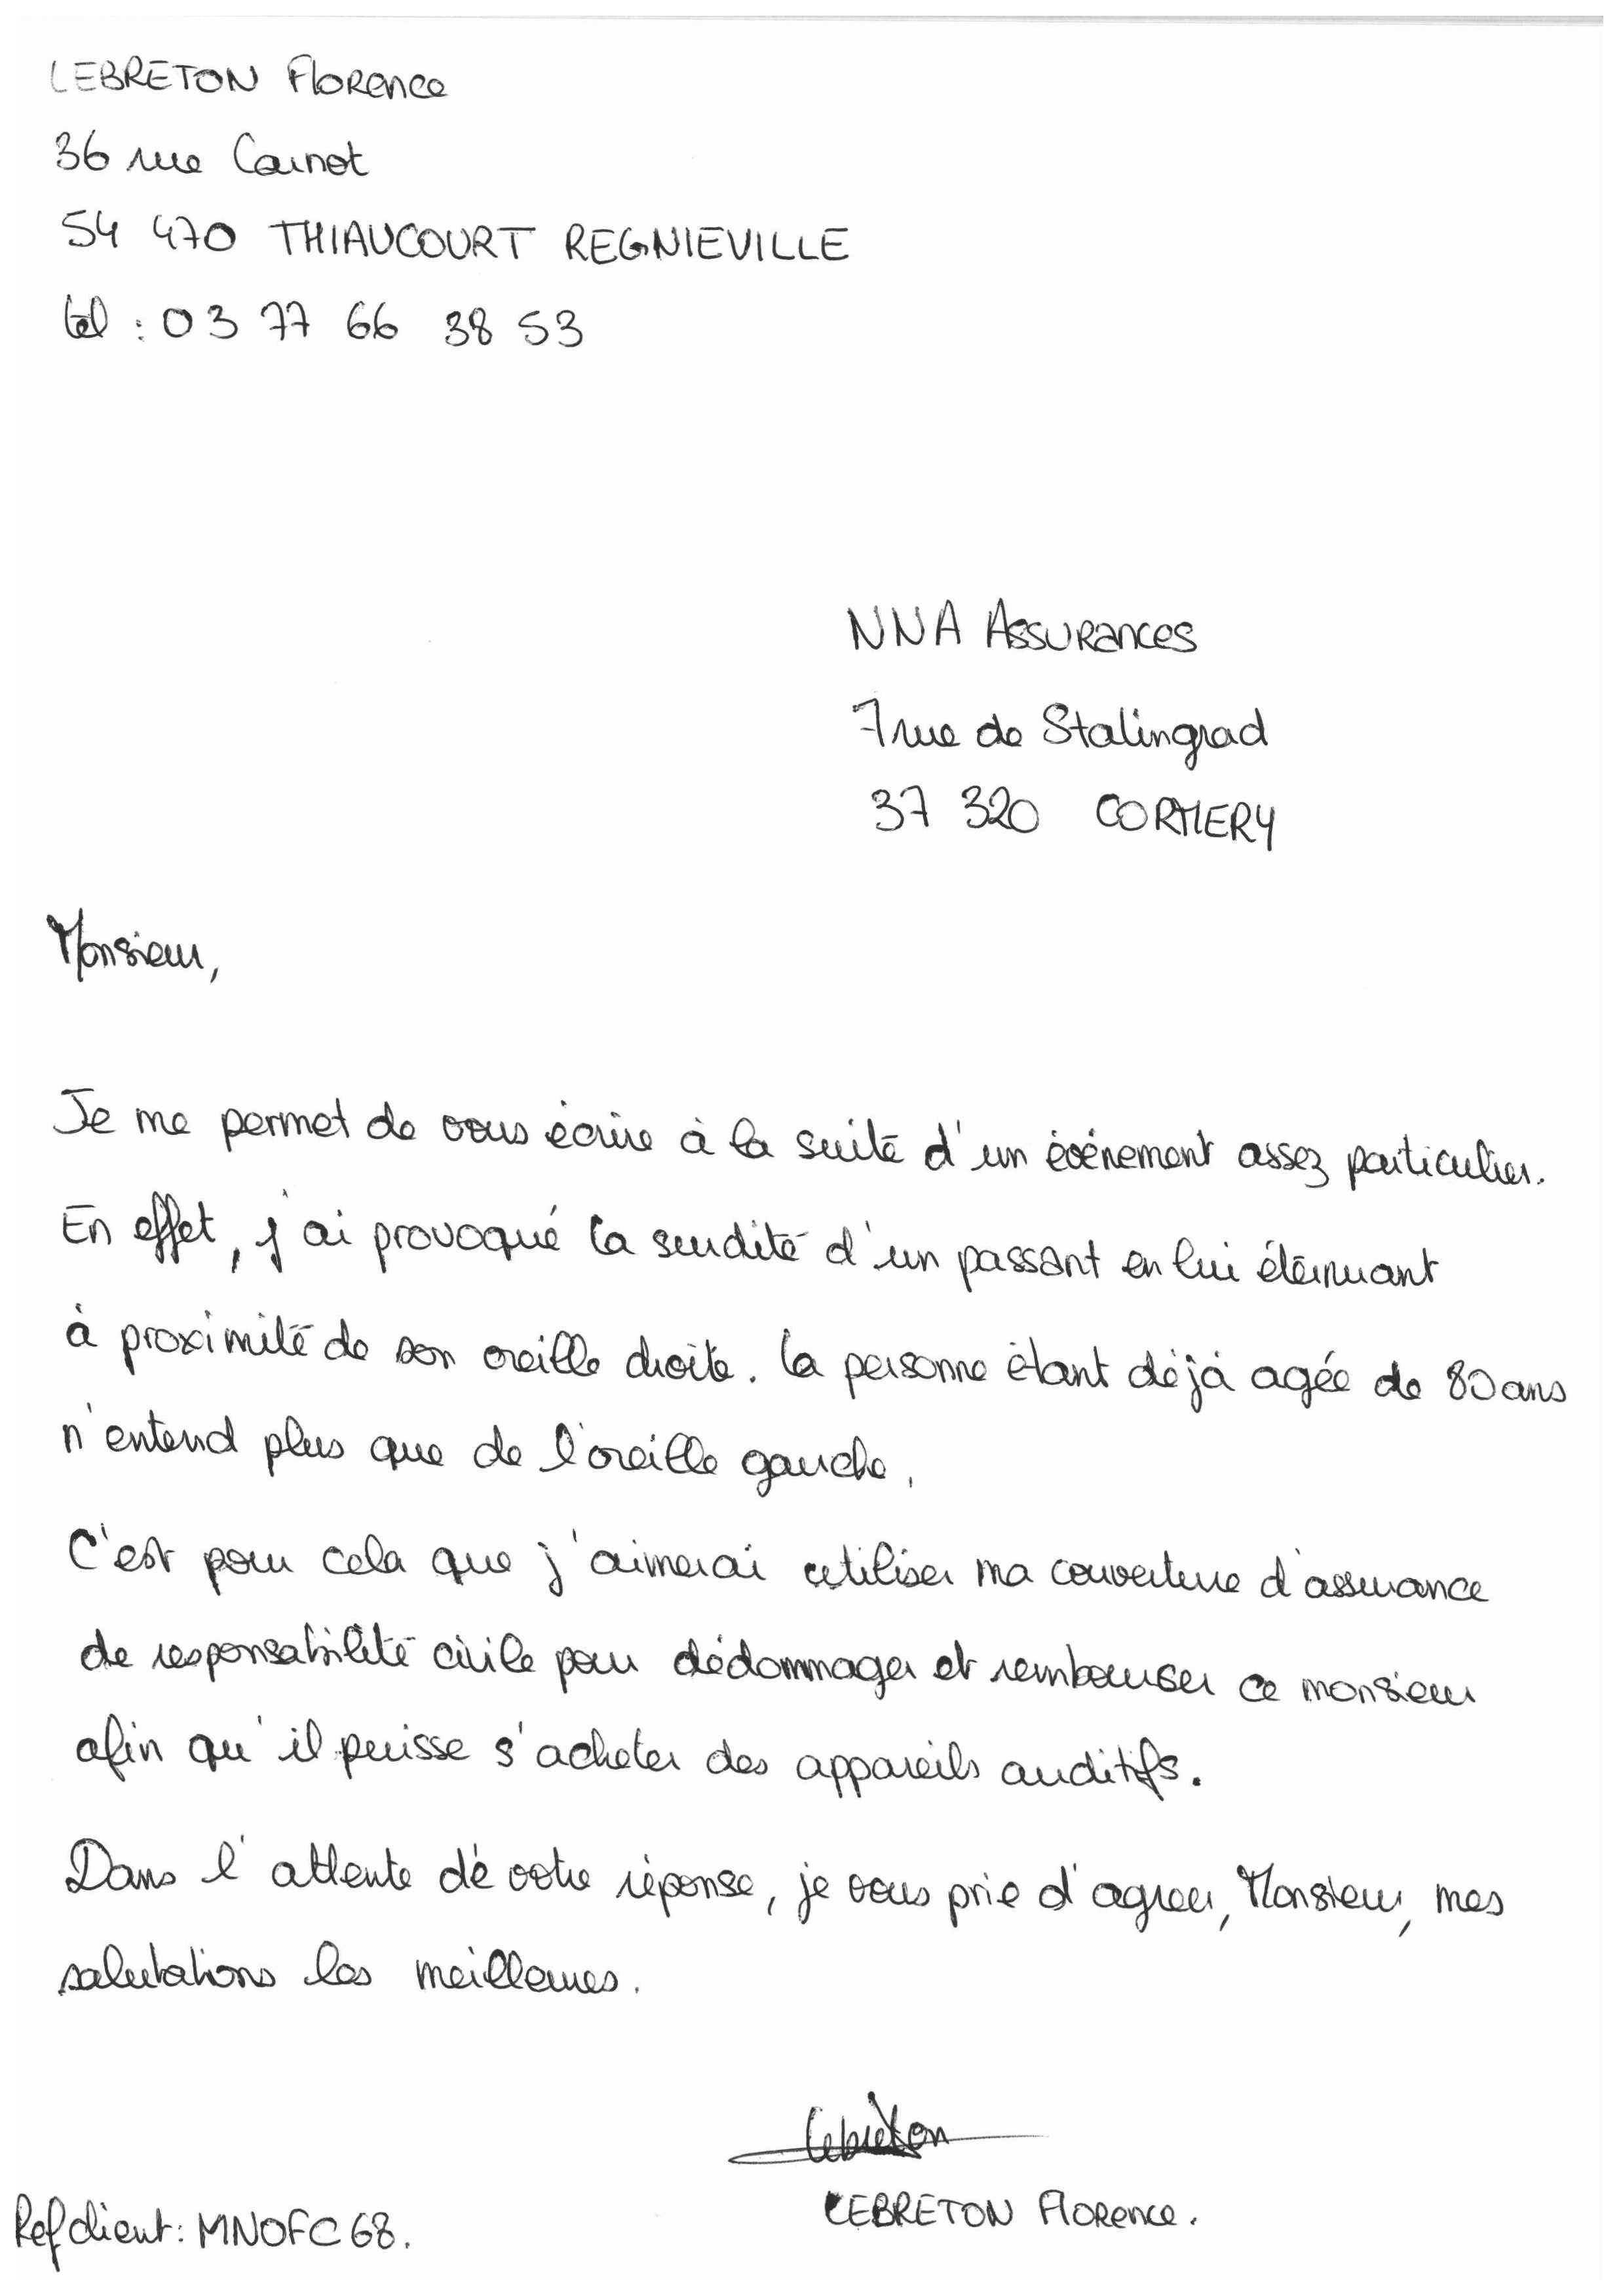 LEBRETON Florence
36 rue Carnot
54 470 THIAUCOURT REGNIEVILLE
tel : 03 77 66 38 53
NNA Assurances
7 rue de Stalingrad
37 320 CORMERY
Monsieur,
Je me permet de vous écrire à la suite d'un événement assez particulier.
En effet, j'ai provoqué la surdité d'un passant en lui éternuant
à proximité de son oreille droite. La personne étant déjà agée de 80 ans
n'entend plus que de l'oreille gauche.
C'est pour cela que j'aimerai utiliser ma couverture d'assurance
de responsabilité civile pour dédommager et rembourser ce monsieur
afin qu'il puisse s'acheter des appareils auditifs.
Dans l'attente de votre réponse, je vous prie d'agreer, Monsieur, mes
salutations les meilleures.
Lebreton
LEBRETON Florence.
Ref client : MNOFC68.